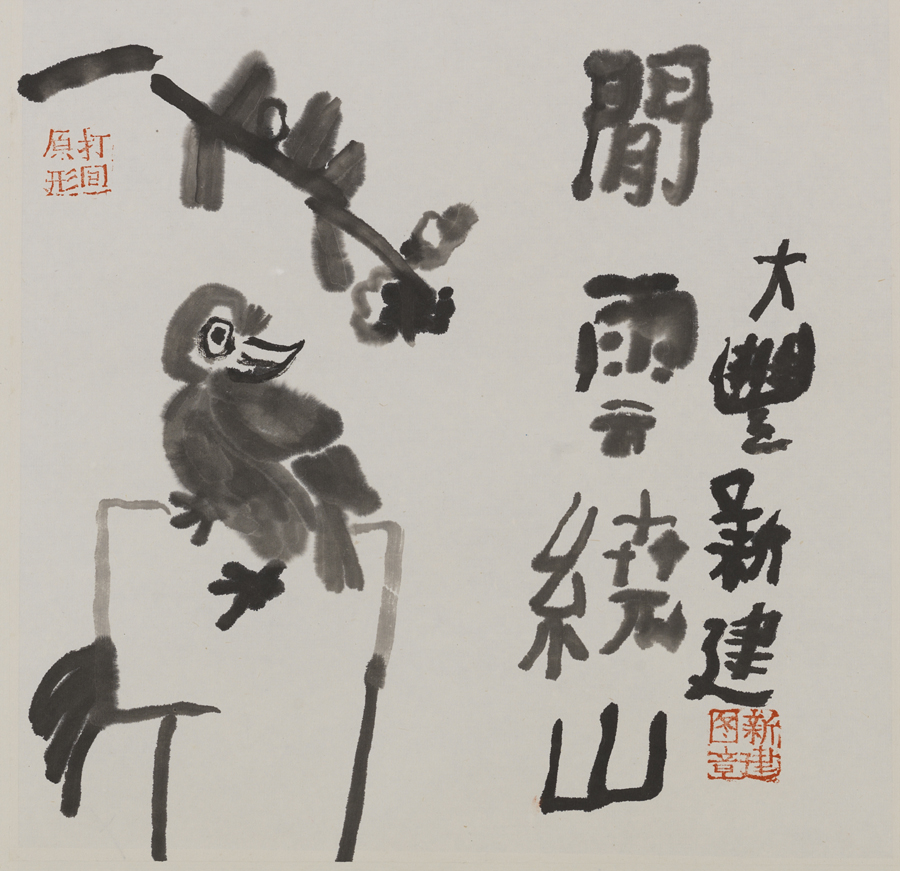 閒雲繞山
大豐新建
新建
图章
打回
原形